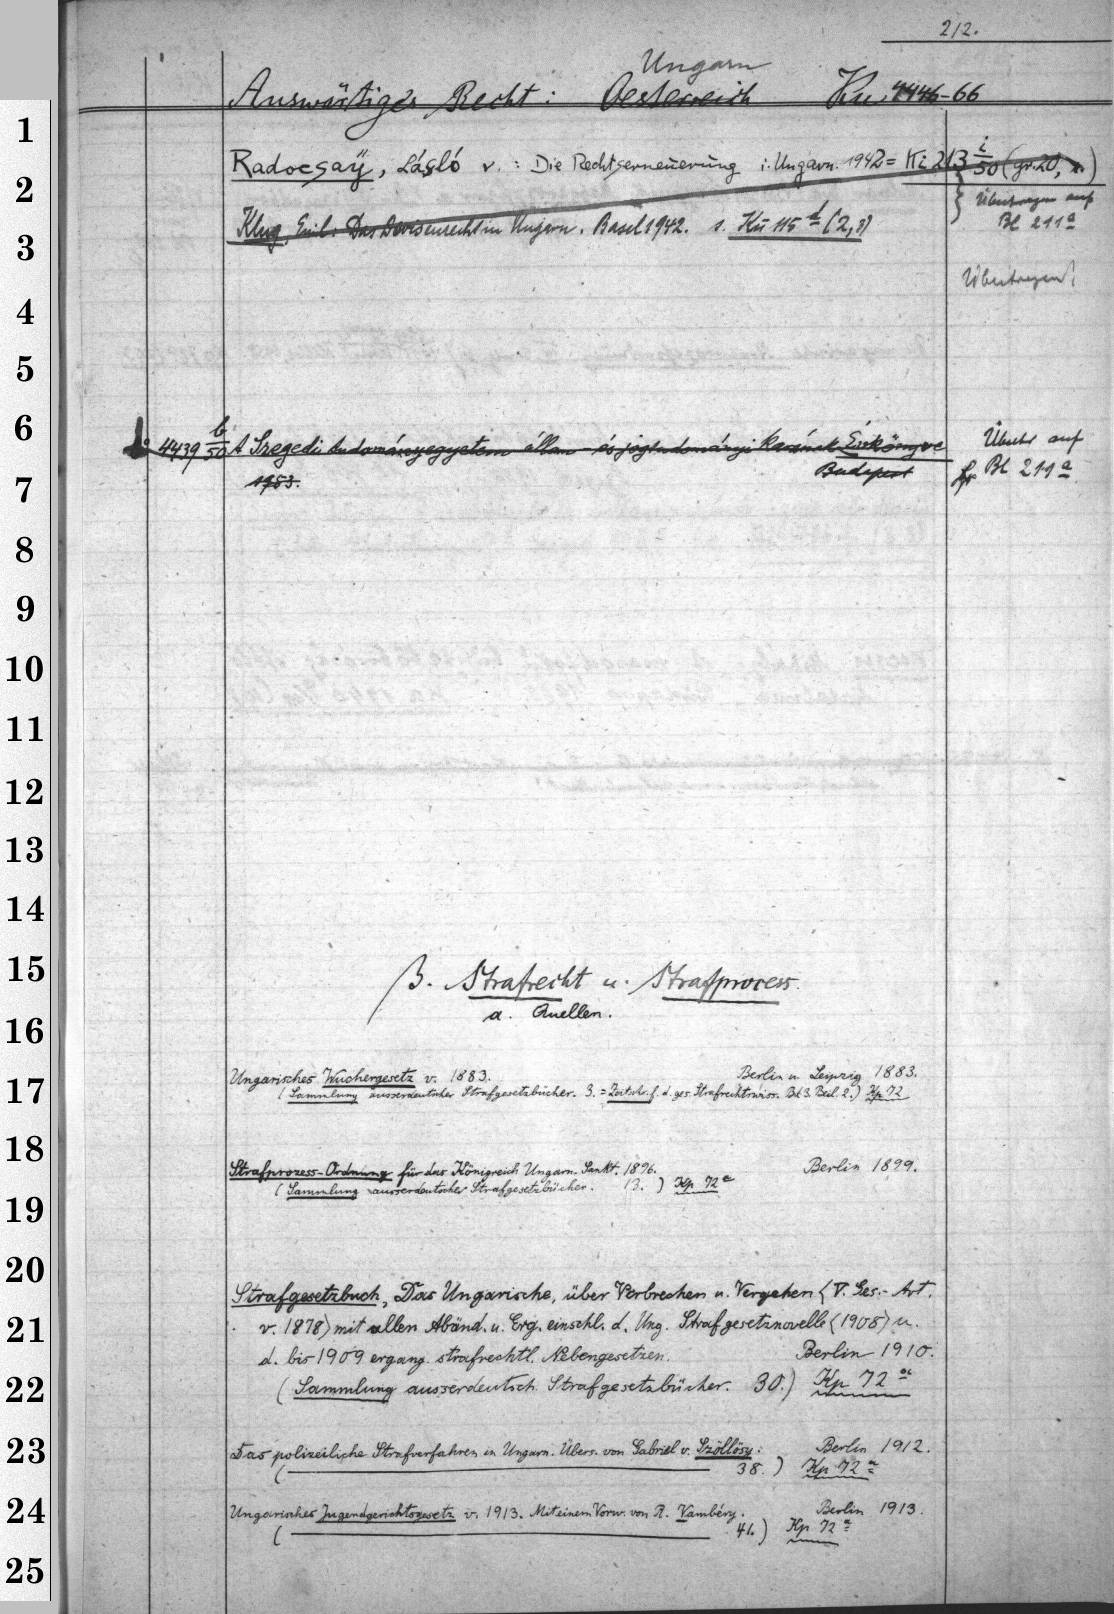 212.
Ungarn
Auswärtiges Recht: Oesterreich Ku 4446-66
1
Radocsaÿ, László v.: Die Rechtserneuerung i. Ungarn. 1942 = Ki 213 i/50 (gr. 20, )
2
} Übertragen auf
Klug, Emil: Das Devisenrecht in Ungarn. Basel 1942. s. Kü 115 d (2,8)
Bl 211a
3
Übertragen!
4
5
6
4439 b/50 A Szegedi tudományegyetem állam- és jogtudományi karának Évkönyve
Übertr auf
1953. Budapest
Bl 211a
7
8
9
10
11
12
13
14
15
β. Strafrecht u. Strafprocess.
a. Quellen.
16
Ungarisches Wuchergesetz v. 1883. Berlin u. Leipzig 1883.
17
(Sammlung ausserdeutscher Strafgesetzbücher. 3. = Zeitschr. f. d. ges. Strafrechtswiss. Bd 3. Beil. 2.) Kp 72
18
Strafprozess-Ordnung für das Königreich Ungarn. Sankt. 1896. Berlin 1899.
(Sammlung ausserdeutscher Strafgesetzbücher. 13.) Kp 72a
19
20
Strafgesetzbuch, Das Ungarische, über Verbrechen u. Vergehen (V. Ges.-Art.
21
v. 1878) mit allen Abänd. u. Erg. einschl. d. Ung. Strafgesetznovelle (1908) u.
d. bis 1909 ergang. strafrechtl. Nebengesetzen. Berlin 1910.
22
(Sammlung ausserdeutsch. Strafgesetzbücher. 30.) Kp 72a
23
Das polizeiliche Strafverfahren in Ungarn. Übers. von Gabriel v. Szöllösy. Berlin 1912.
( 38.) Kp 72a
24
Ungarisches Jugendgerichtsgesetz v. 1913. Mit einem Vorw. von R. Vambéry. Berlin 1913.
( 41.) Kp 72a
25